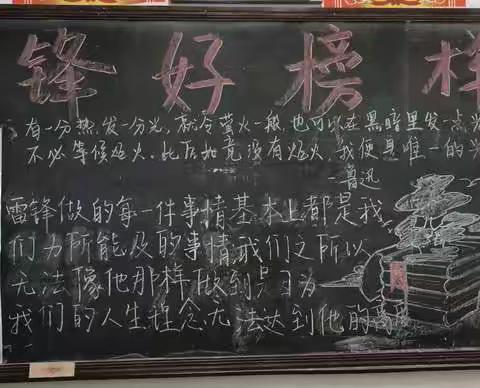 锋好榜样
有一分热,发一分光,就令萤火一般,也可以在黑暗里发一点光
不必等候炬火.此后如竟没有炬火,我便是唯一的光
—鲁迅
雷锋做的每一件事情基本上都是我
们力所能及的事情,我们之所以
无法像他那样做到是因为
我们的人生理念无法达到他的高度